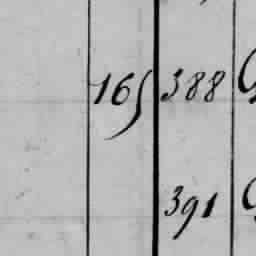 165 388
391